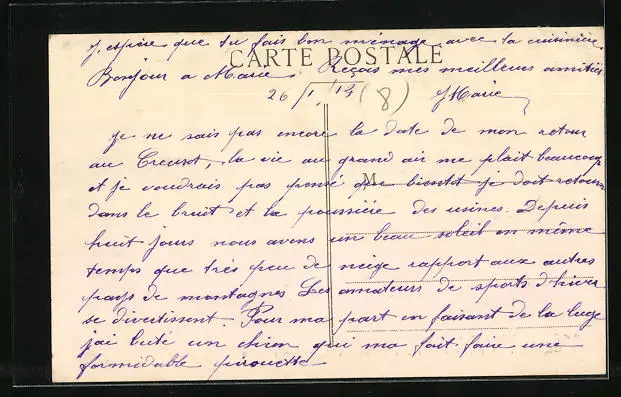 J'espère que tu fais bon ménage avec ta cuisinière.
CARTE POSTALE
Bonjour a Marie. Reçois mes meilleurs amitiés
26/1/13 (8) JMarie
Je ne sais pas encore la date de mon retour
au Creusot, la vie au grand air me plait beaucoup
M
et je voudrais pas pensé que bientôt je doit retourner
dans le bruit et la poussière des usines. Depuis
huit jours nous avons un beau soleil en même
temps que très peu de neige rapport aux autres
pays de montagnes Les amateurs de sports d'hiver
se divertissent. Pour ma part en faisant de la luge
j'ai buté un chien qui ma fait faire une
formidable pirouette